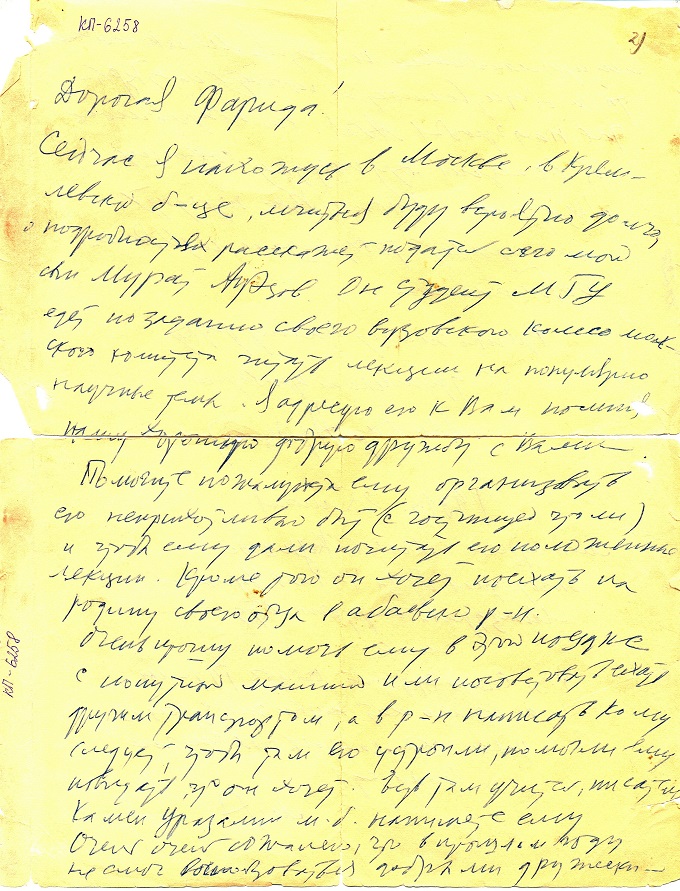 КП-6258
2)
Дорогая Фарида!
Сейчас я нахожусь в Москве, в Крем-
левской б-це, лечиться буду вероятно долго,
о подробностях расскажет податель сего мой
сын Мурат Ауэзов Он студент МГУ
едет по заданию своего вузовского комсомоль-
ского комитета читать лекции на популярно
научные темы. Я адресую его к Вам помня
нашу хорошую добрую дружбу с Вами.
Помогите пожалуйста ему организовать
его неприхотливый быт (с гостиницей что ли)
и чтоб ему дали почитать его положенные
лекции. Кроме того он хочет поехать на
родину своего отца в Абаевский р-н.
Очень прошу помочь ему в этой поездке
с попутной машиной или посоветовать ехать
другим транспортом, а в р-н написать кому
следует, чтоб там его устроили, помогли ему
повидать, что он хочет. Ведь там учитель, писатель
Камен Уразалин м.б. напишете ему
Очень очень сожалею, что в прошлом году
не смог воспользоваться добрыми дружески-
КП-6258